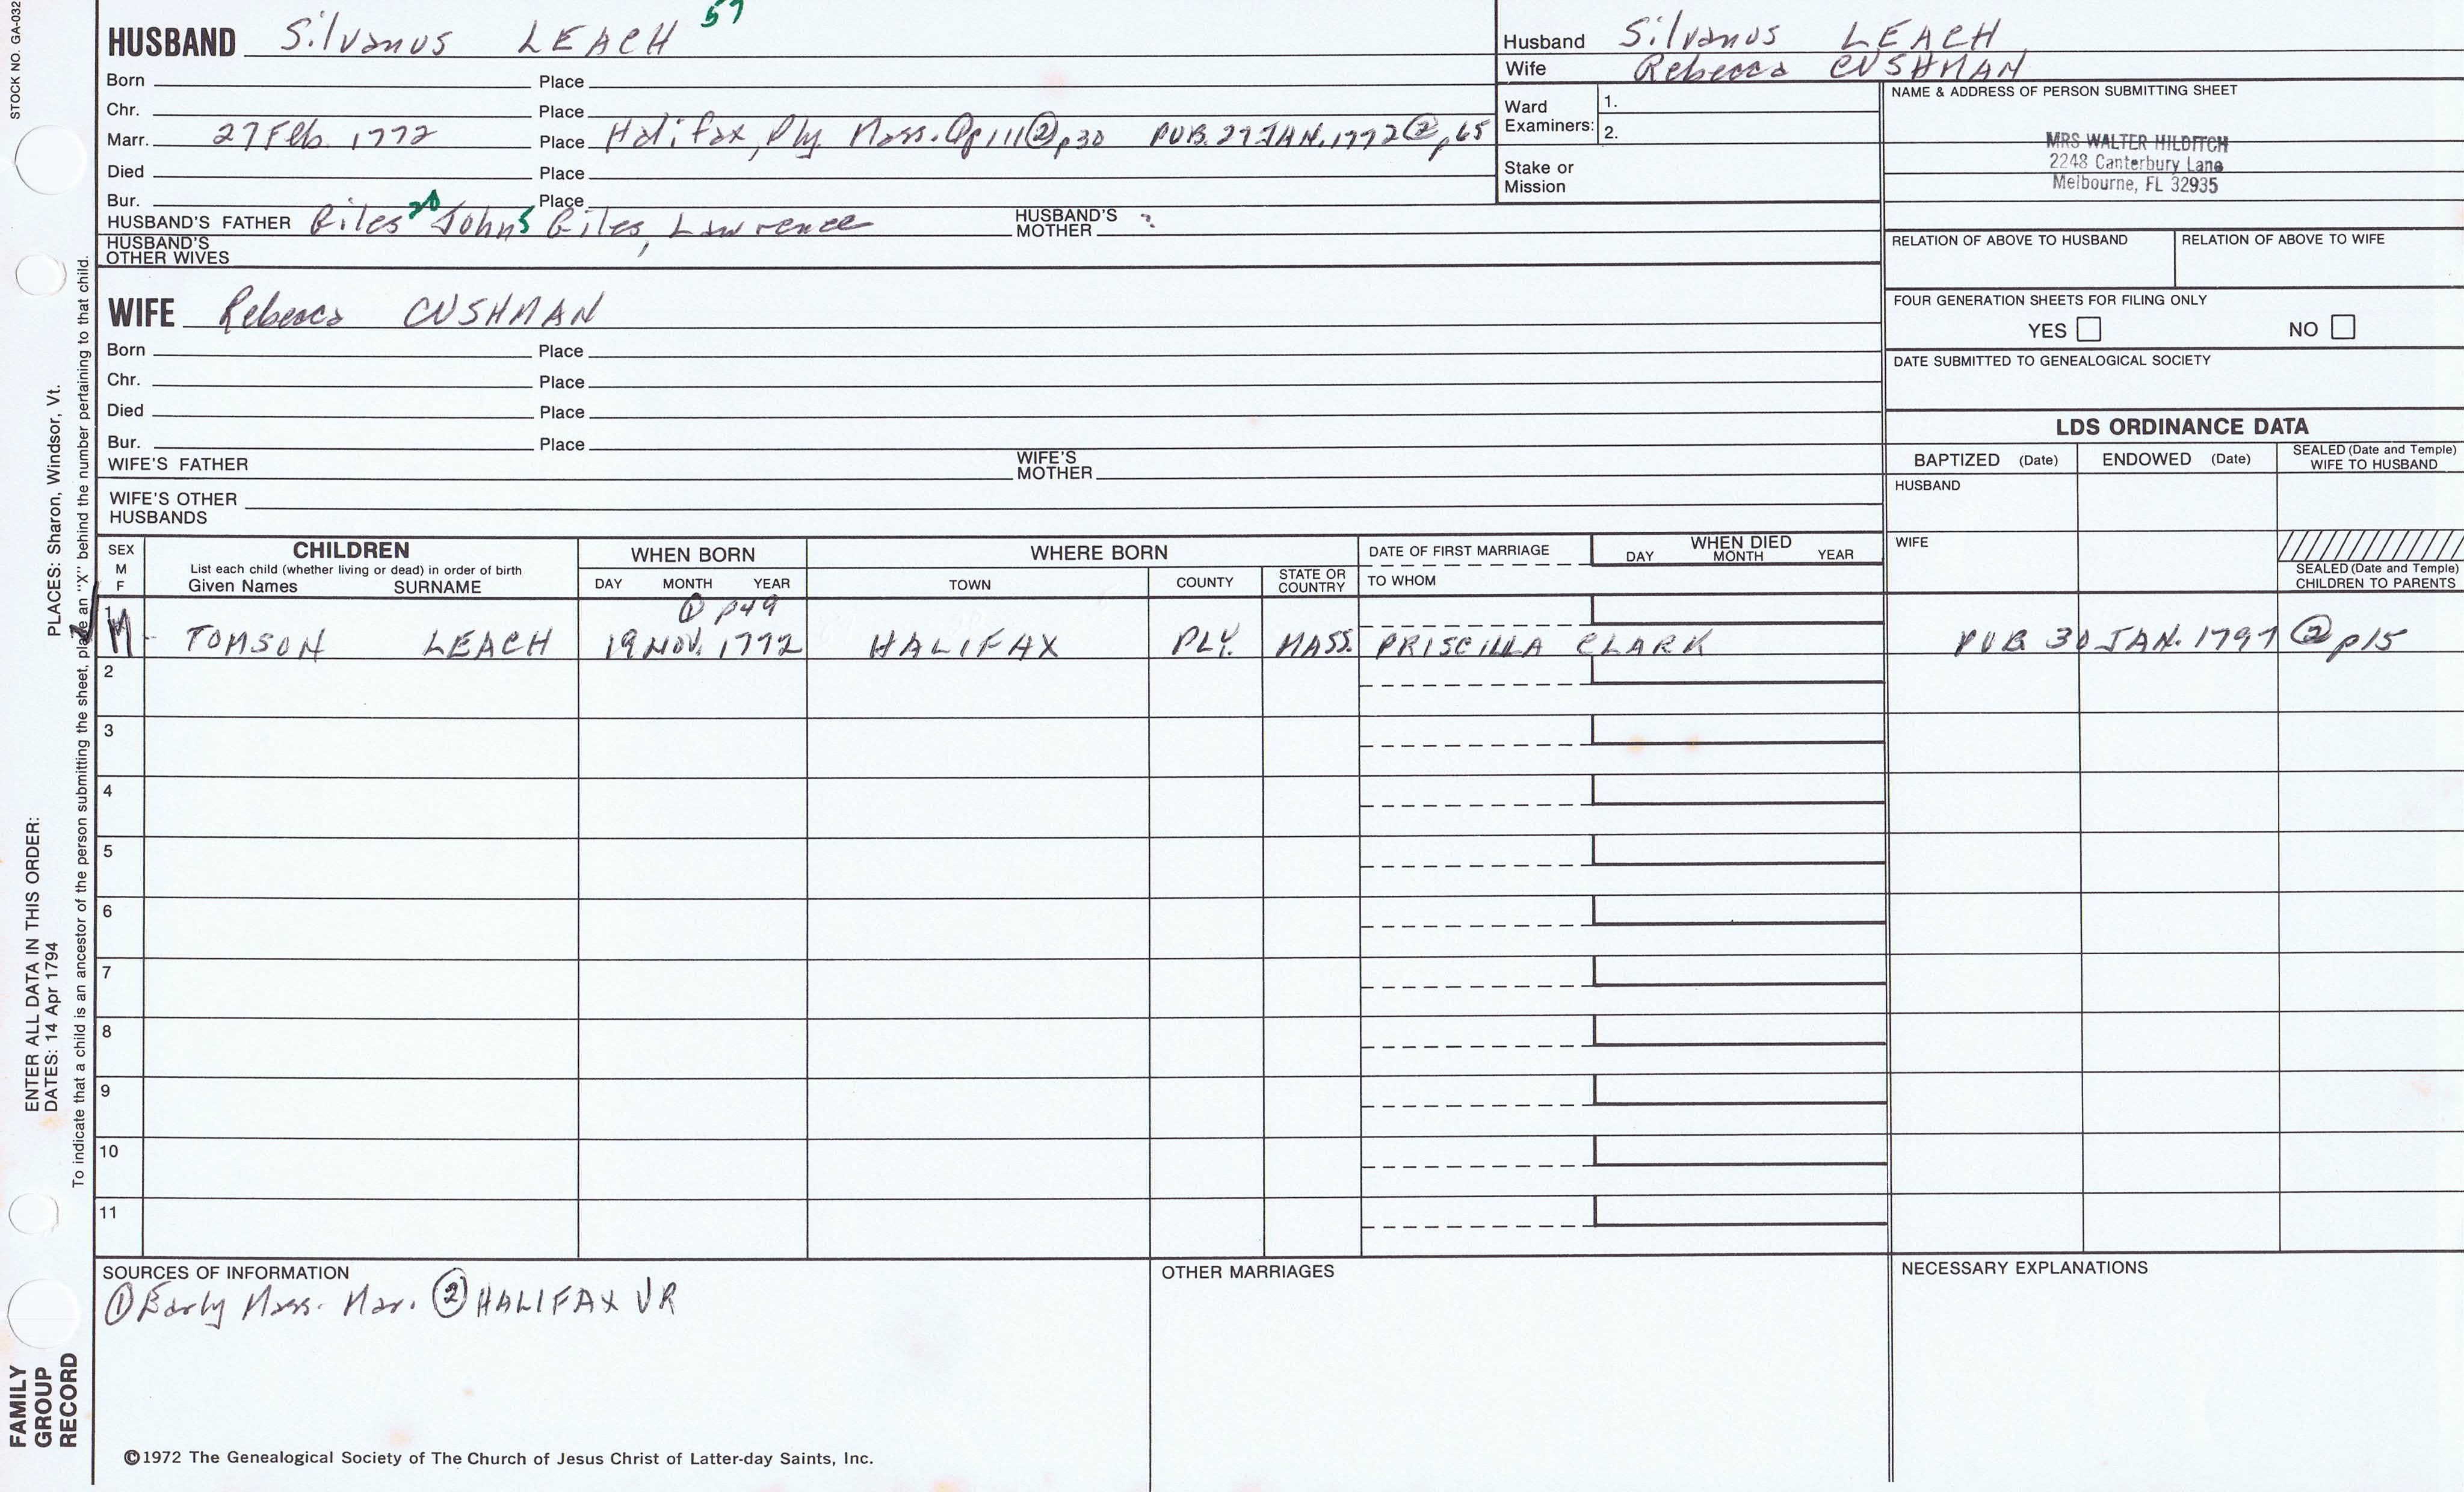 STOCK NO. GA-032
HUSBAND Silvanus LEACH 57
Born Place
Chr. Place
Marr. 27 Feb. 1772 Place Halifax, Ply. Mass. ① p 111 ② p30 PUB. 27 JAN. 1772 ② p 65
Died Place
Bur. Place
HUSBAND'S FATHER Giles John 5 Giles, Lawrence HUSBAND'S MOTHER ?
HUSBAND'S OTHER WIVES
Husband Silvanus LEACH
Wife Rebecca CUSHMAN
Ward Examiners: 1.
2.
Stake or Mission
NAME & ADDRESS OF PERSON SUBMITTING SHEET
MRS WALTER HILDITCH
2248 Canterbury Lane
Melbourne, FL 32935
RELATION OF ABOVE TO HUSBAND RELATION OF ABOVE TO WIFE
FOUR GENERATION SHEETS FOR FILING ONLY
YES NO
DATE SUBMITTED TO GENEALOGICAL SOCIETY
WIFE Rebecca CUSHMAN
Born Place
Chr. Place
Died Place
Bur. Place
WIFE'S FATHER WIFE'S MOTHER
WIFE'S OTHER HUSBANDS
LDS ORDINANCE DATA
BAPTIZED (Date) ENDOWED (Date) SEALED (Date and Temple) WIFE TO HUSBAND
HUSBAND
WIFE
SEALED (Date and Temple) CHILDREN TO PARENTS
SEX M F
CHILDREN
List each child (whether living or dead) in order of birth
Given Names SURNAME
WHEN BORN
DAY MONTH YEAR
WHERE BORN
TOWN COUNTY STATE OR COUNTRY
DATE OF FIRST MARRIAGE
TO WHOM
WHEN DIED
DAY MONTH YEAR
① p49
1 M TOMSON LEACH 19 NOV. 1772 HALIFAX PLY. MASS. PRISCILLA CLARK PUB 30 JAN. 1797 ② p15
2
3
4
5
6
7
8
9
10
11
SOURCES OF INFORMATION
① Early Mass. Mar. ② HALIFAX VR
OTHER MARRIAGES
NECESSARY EXPLANATIONS
©1972 The Genealogical Society of The Church of Jesus Christ of Latter-day Saints, Inc.
FAMILY GROUP RECORD
ENTER ALL DATA IN THIS ORDER:
DATES: 14 Apr 1794
PLACES: Sharon, Windsor, Vt.
To indicate that a child is an ancestor of the person submitting the sheet, place an "X" behind the number pertaining to that child.